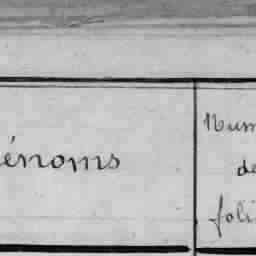 énoms
Num
de
foli